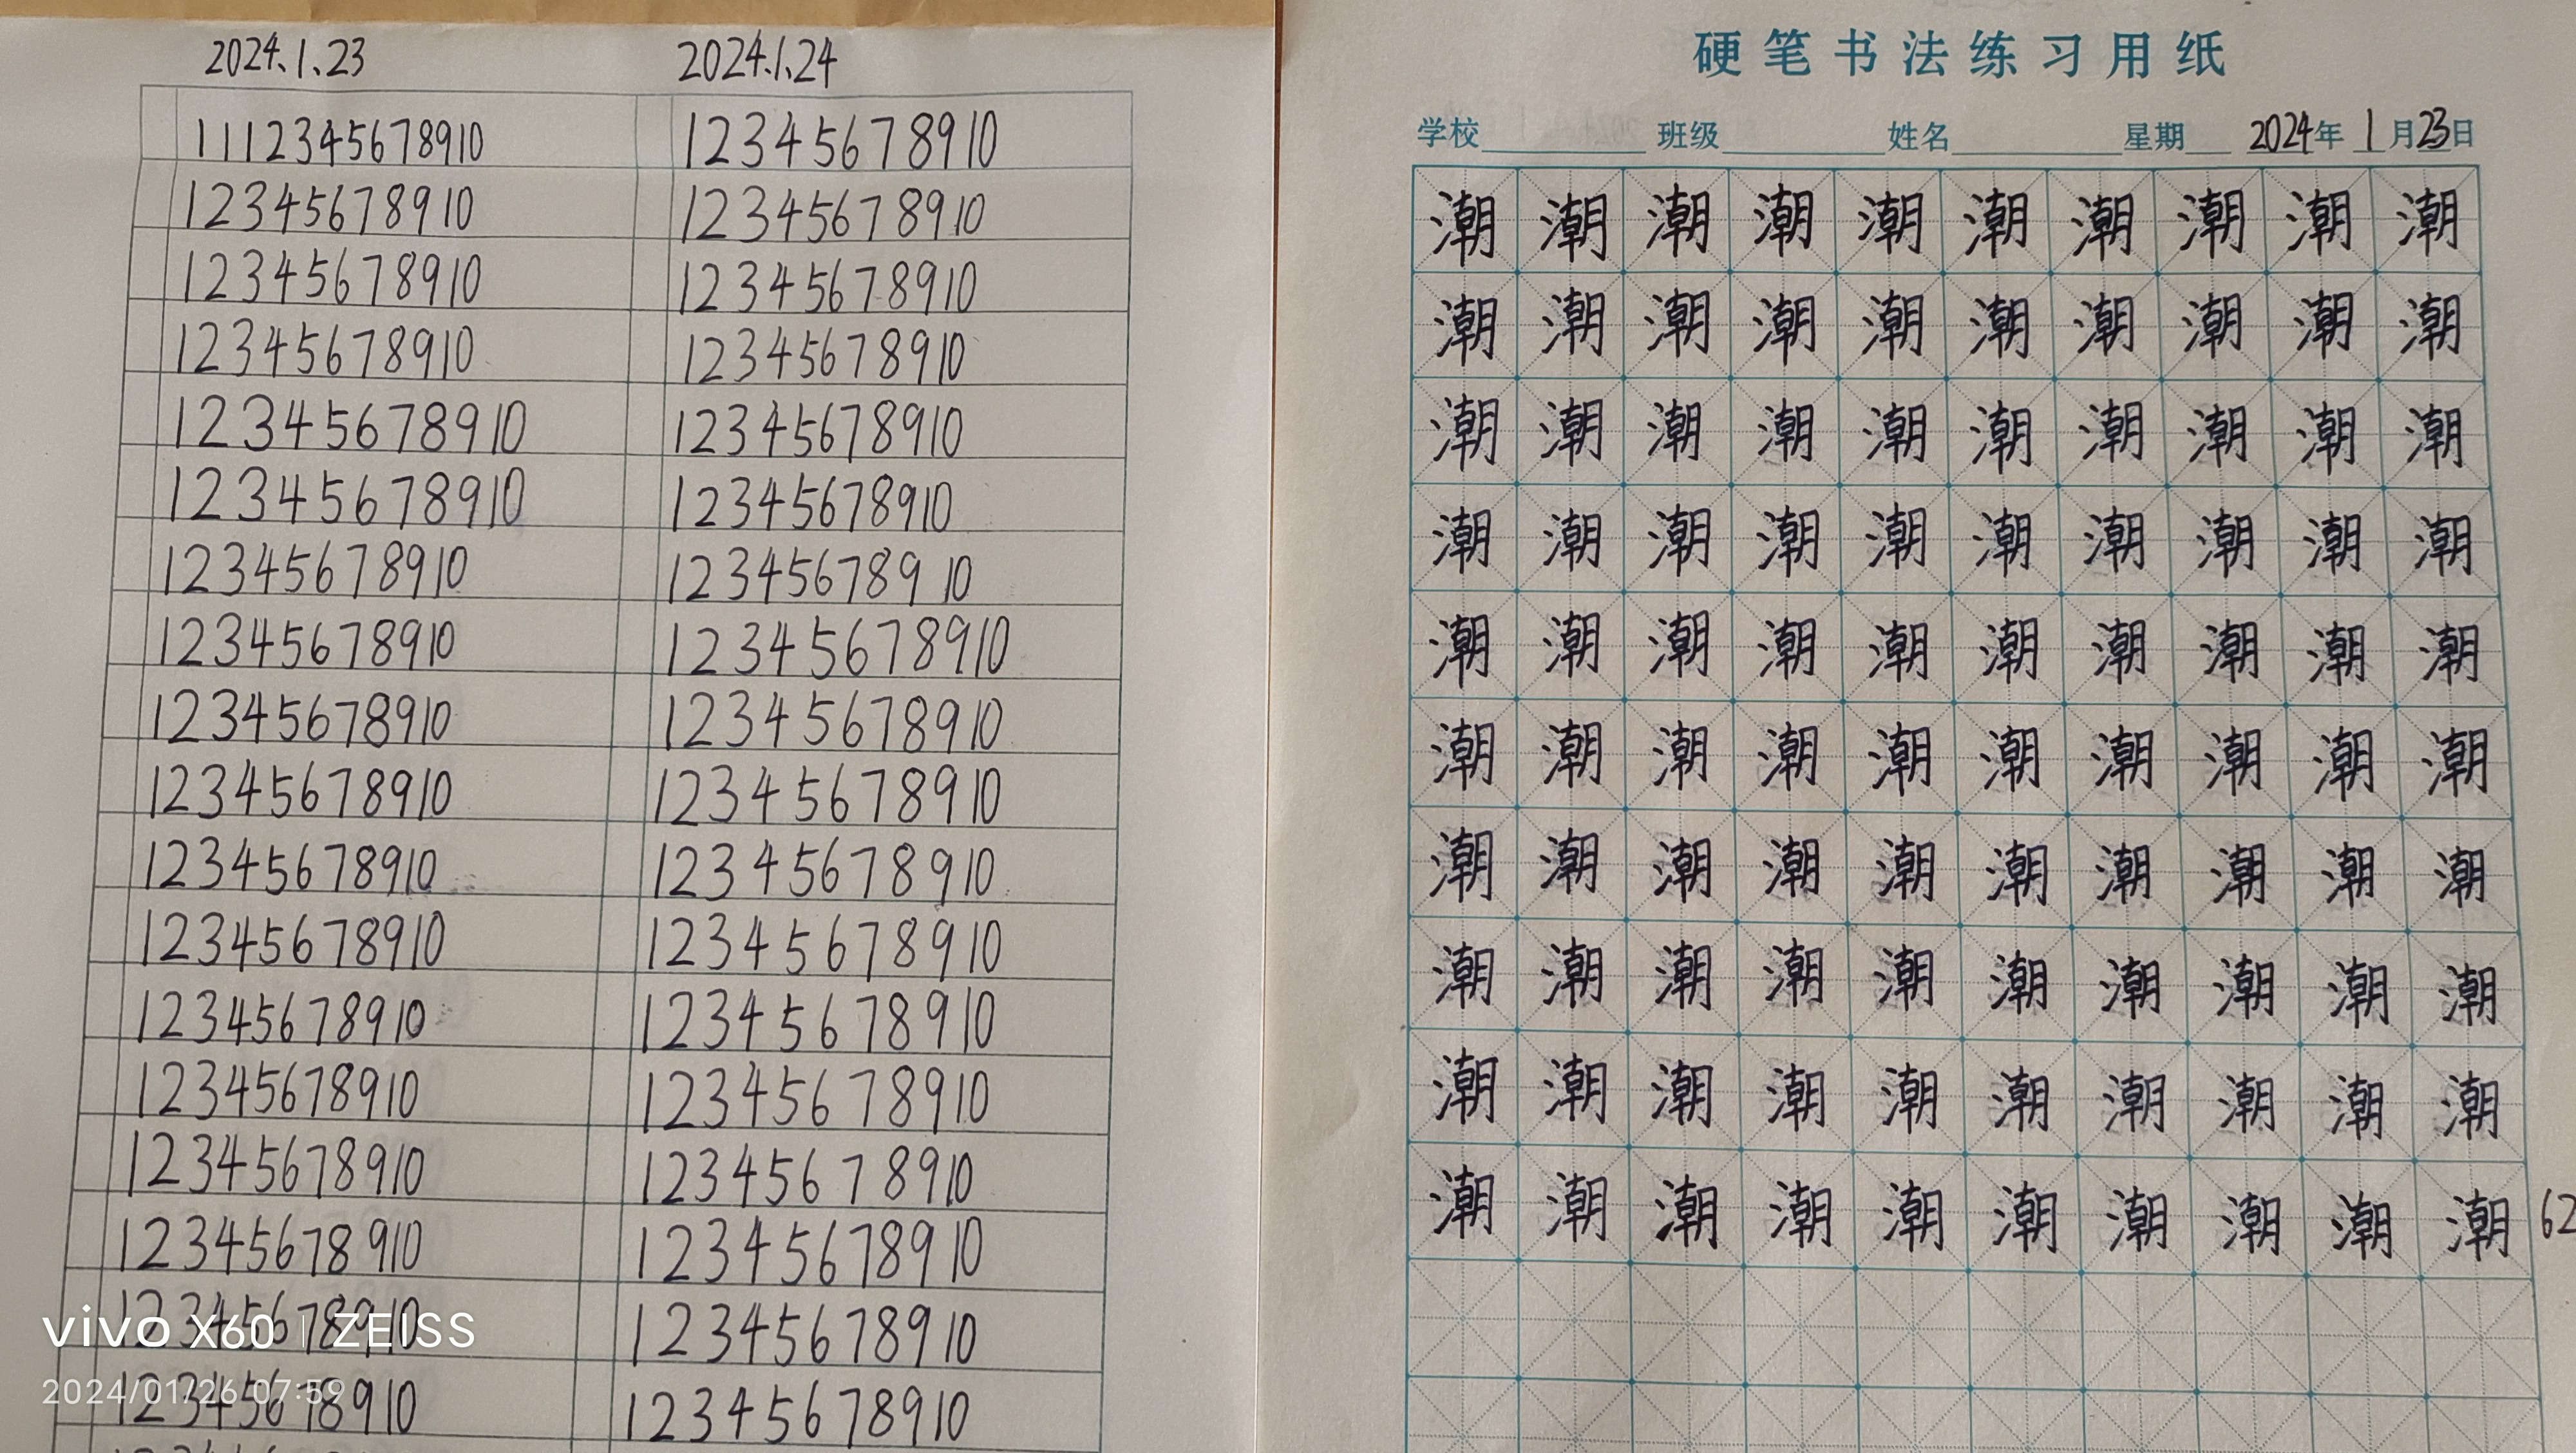 2024.1.23
1112345678910
12345678910
12345678910
12345678910
12345678910
12345678910
12345678910
12345678910
12345678910
12345678910
12345678910
12345678910
12345678910
12345678910
12345678910
12345678910
12345678910
12345678910
2024.1.24
12345678910
12345678910
12345678910
12345678910
12345678910
12345678910
12345678910
12345678910
12345678910
12345678910
12345678910
12345678910
12345678910
12345678910
12345678910
12345678910
12345678910
12345678910
vivo X60 | ZEISS
2024/01/26 07:59
硬笔书法练习用纸
学校 班级 姓名 星期 2024年1月23日
潮潮潮潮潮潮潮潮潮潮
潮潮潮潮潮潮潮潮潮潮
潮潮潮潮潮潮潮潮潮潮
潮潮潮潮潮潮潮潮潮潮
潮潮潮潮潮潮潮潮潮潮
潮潮潮潮潮潮潮潮潮潮
潮潮潮潮潮潮潮潮潮潮
潮潮潮潮潮潮潮潮潮潮
潮潮潮潮潮潮潮潮潮潮
潮潮潮潮潮潮潮潮潮潮 62